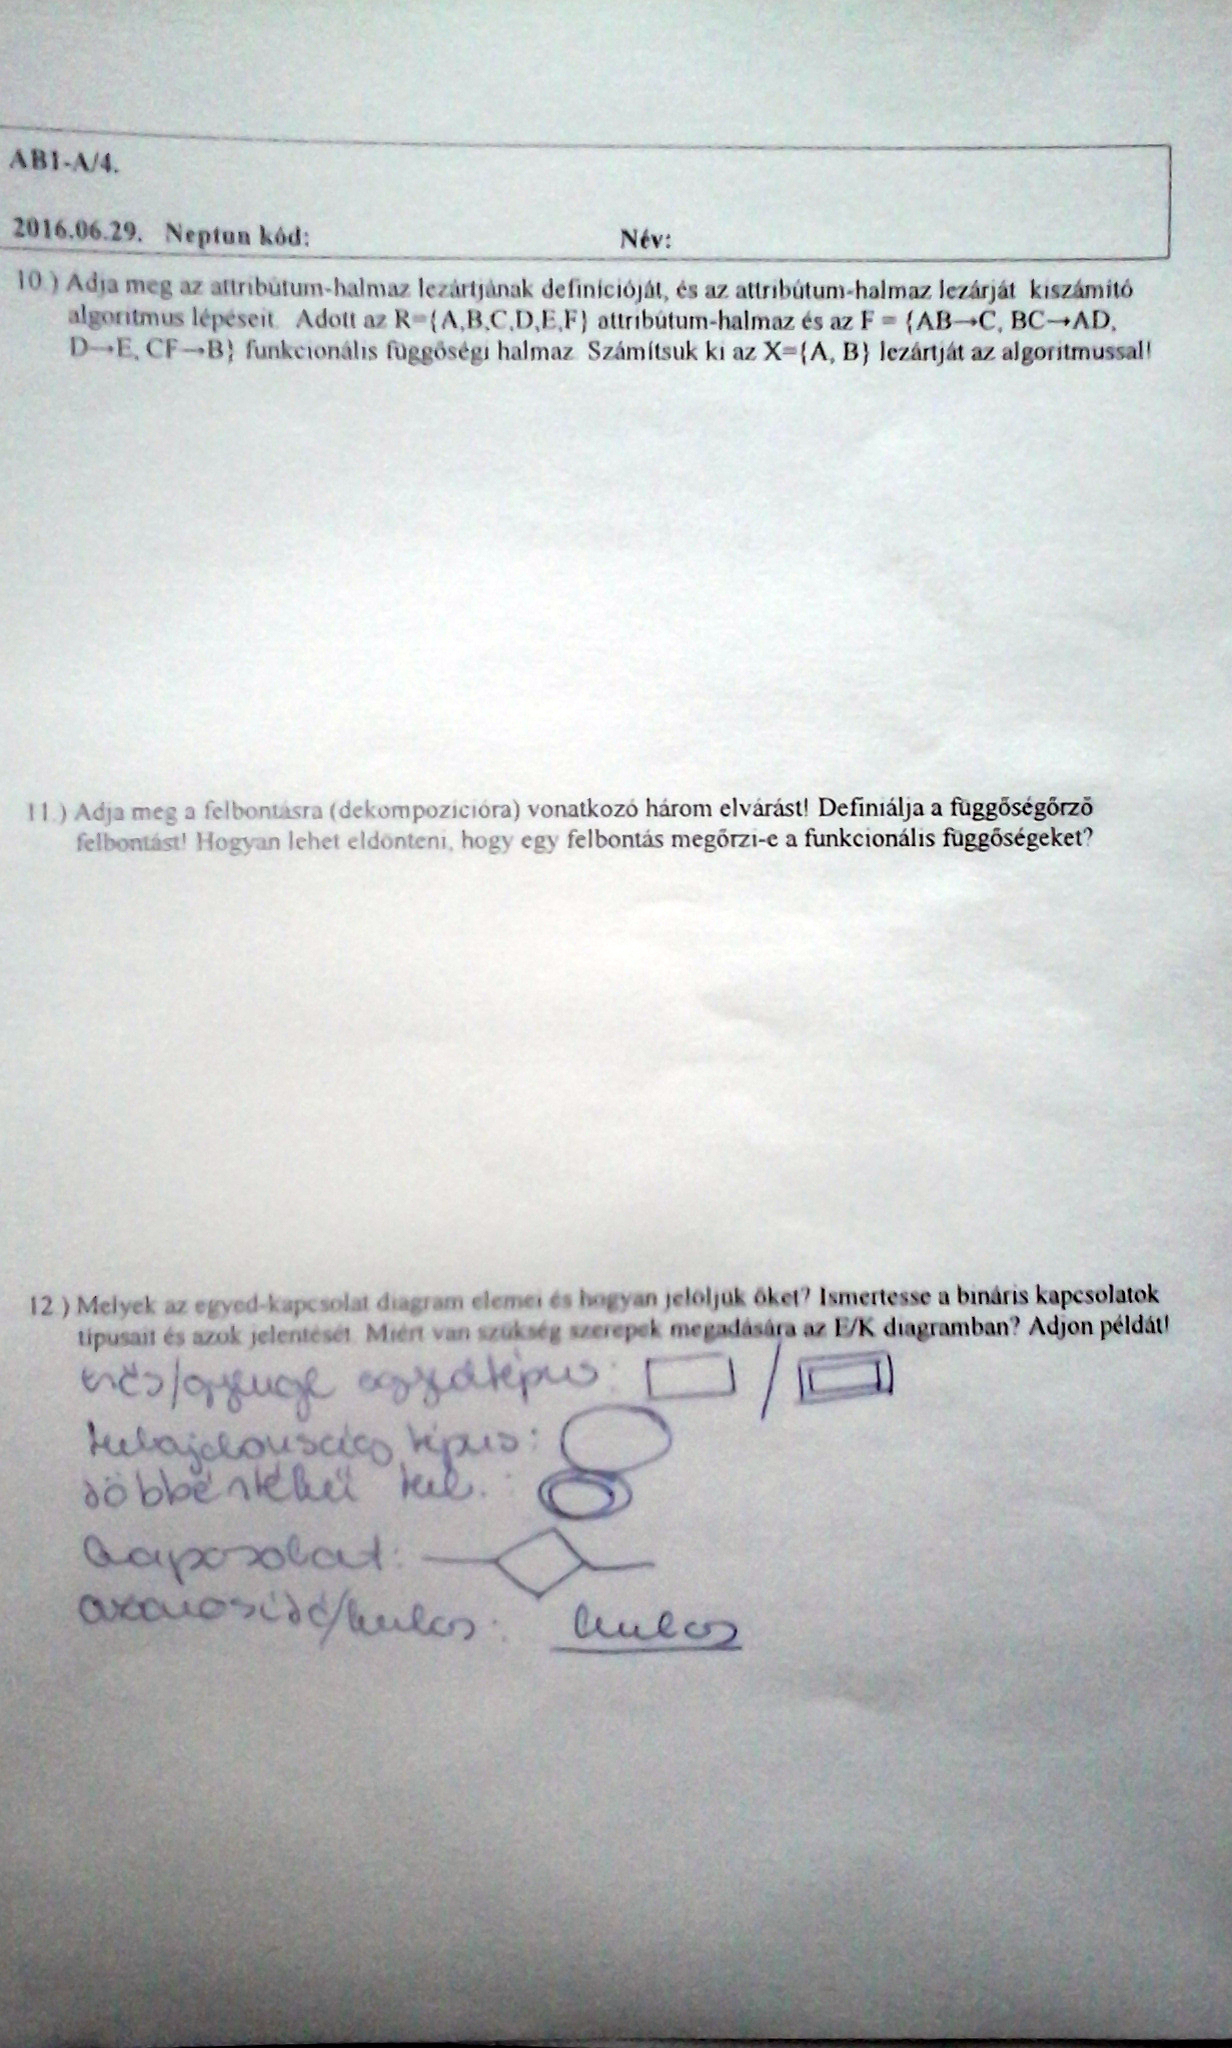 AB1-A/4.
2016.06.29. Neptun kód: Név:
10.) Adja meg az attribútum-halmaz lezártjának definícióját, és az attribútum-halmaz lezárját kiszámító
algoritmus lépéseit. Adott az R={A,B,C,D,E,F} attribútum-halmaz és az F = {AB→C, BC→AD,
D→E, CF→B} funkcionális függőségi halmaz. Számítsuk ki az X={A, B} lezártját az algoritmussal!
11.) Adja meg a felbontásra (dekompozícióra) vonatkozó három elvárást! Definiálja a függőségőrző
felbontást! Hogyan lehet eldönteni, hogy egy felbontás megőrzi-e a funkcionális függőségeket?
12.) Melyek az egyed-kapcsolat diagram elemei és hogyan jelöljük őket? Ismertesse a bináris kapcsolatok
típusait és azok jelentését. Miért van szükség szerepek megadására az E/K diagramban? Adjon példát!
erős/gyenge egyedtípus: /
tulajdonság típus:
többértékű tul. :
kapcsolat:
azonosító/kulcs: kulcs